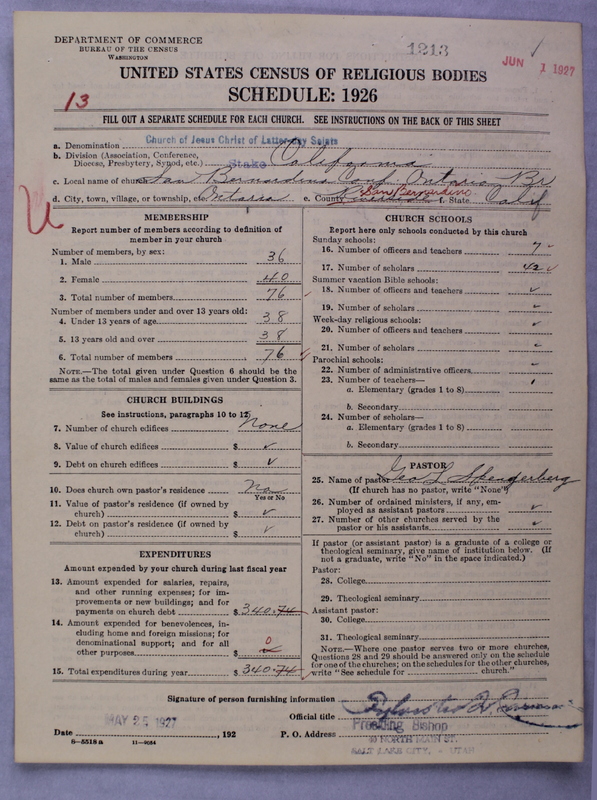 DEPARTMENT OF COMMERCE
BUREAU OF THE CENSUS
WASHINGTON
1213
JUN 1 1927
UNITED STATES CENSUS OF RELIGIOUS BODIES
SCHEDULE: 1926
13
FILL OUT A SEPARATE SCHEDULE FOR EACH CHURCH. SEE INSTRUCTIONS ON THE BACK OF THIS SHEET
a. Denomination Church of Jesus Christ of Latter-day Saints
b. Division (Association, Conference, Diocese, Presbytery, Synod, etc.) Stake California
c. Local name of church San Bernardino Ontario Br
d. City, town, village, or township, etc. Ontario e. County San Bernardino f. State Calif
MEMBERSHIP
Report number of members according to definition of
member in your church
Number of members, by sex:
1. Male 36
2. Female 40
3. Total number of members 76
Number of members under and over 13 years old:
4. Under 13 years of age 38
5. 13 years old and over 38
6. Total number of members 76
NOTE.—The total given under Question 6 should be the
same as the total of males and females given under Question 3.
CHURCH BUILDINGS
See instructions, paragraphs 10 to 12
7. Number of church edifices None
8. Value of church edifices $ ✓
9. Debt on church edifices $ ✓
10. Does church own pastor's residence No
Yes or No
11. Value of pastor's residence (if owned by
church) $ ✓
12. Debt on pastor's residence (if owned by
church) $ ✓
EXPENDITURES
Amount expended by your church during last fiscal year
13. Amount expended for salaries, repairs,
and other running expenses; for im-
provements or new buildings; and for
payments on church debt $ 340.74
14. Amount expended for benevolences, in-
cluding home and foreign missions; for
denominational support; and for all
other purposes $ 0
15. Total expenditures during year $ 340.74
CHURCH SCHOOLS
Report here only schools conducted by this church
Sunday schools:
16. Number of officers and teachers 7
17. Number of scholars 42
Summer vacation Bible schools:
18. Number of officers and teachers ✓
19. Number of scholars
Week-day religious schools:
20. Number of officers and teachers
21. Number of scholars
Parochial schools:
22. Number of administrative officers
23. Number of teachers—
a. Elementary (grades 1 to 8)
b. Secondary
24. Number of scholars—
a. Elementary (grades 1 to 8)
b. Secondary
PASTOR
25. Name of pastor Geo L
(If church has no pastor, write "None")
26. Number of ordained ministers, if any, em-
ployed as assistant pastors ✓
27. Number of other churches served by the
pastor or his assistants ✓
If pastor (or assistant pastor) is a graduate of a college or
theological seminary, give name of institution below. (If
not a graduate, write "No" in the space indicated.)
Pastor:
28. College
29. Theological seminary
Assistant pastor:
30. College
31. Theological seminary
NOTE.—Where one pastor serves two or more churches,
Questions 28 and 29 should be answered only on the schedule
for one of the churches; on the schedules for the other churches,
write "See schedule for church."
Signature of person furnishing information Sylvester Q Cannon
Official title Presiding Bishop
MAY 25 1927
Date , 192 P. O. Address 40 NORTH MAIN ST.
SALT LAKE CITY, - UTAH
8-5518a 11-9684